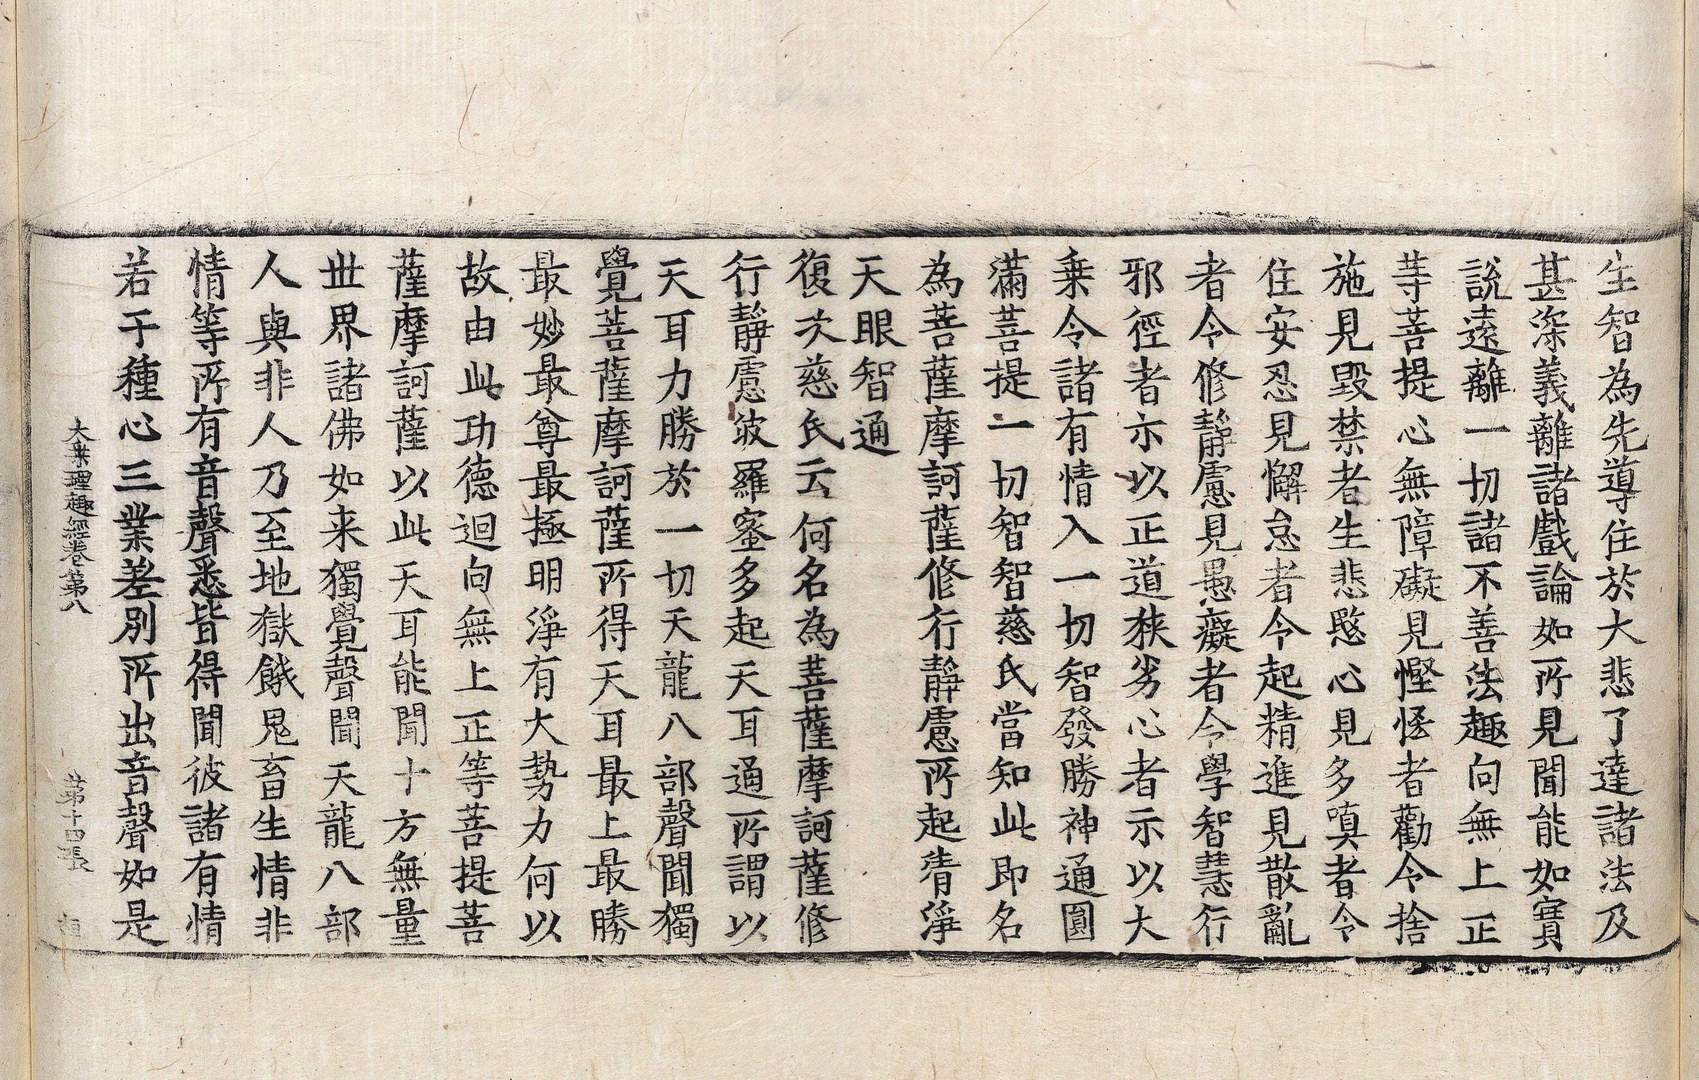 生智為先導住於大悲了達諸法及
甚深義離諸戲論如所見聞能如實
說遠離一切諸不善法趣向無上正
等菩提心無障礙見慳悋者勸令捨
施見毀禁者生悲愍心見多嗔者令
住安忍見懈怠者令起精進見散亂
者令修靜慮見愚癡者令學智慧行
邪徑者示以正道狹劣心者示以大
乗令諸有情入一切智發勝神通圓
滿菩提一切智智慈氏當知此即名
為菩薩摩訶薩修行靜慮所起清淨
天眼智通
復次慈氏云何名為菩薩摩訶薩修
行靜慮波羅蜜多起天耳通所謂以
天耳力勝於一切天龍八部聲聞獨
覺菩薩摩訶薩所得天耳最上最勝
最妙最尊最極明淨有大勢力何以
故由此功德迴向無上正等菩提菩
薩摩訶薩以此天耳能聞十方無量
世界諸佛如来獨覺聲聞天龍八部
人與非人乃至地獄餓鬼畜生情非
情等所有音聲悉皆得聞彼諸有情
若干種心三業差別所出音聲如是
大乗理趣經卷第八 第十四張 垣